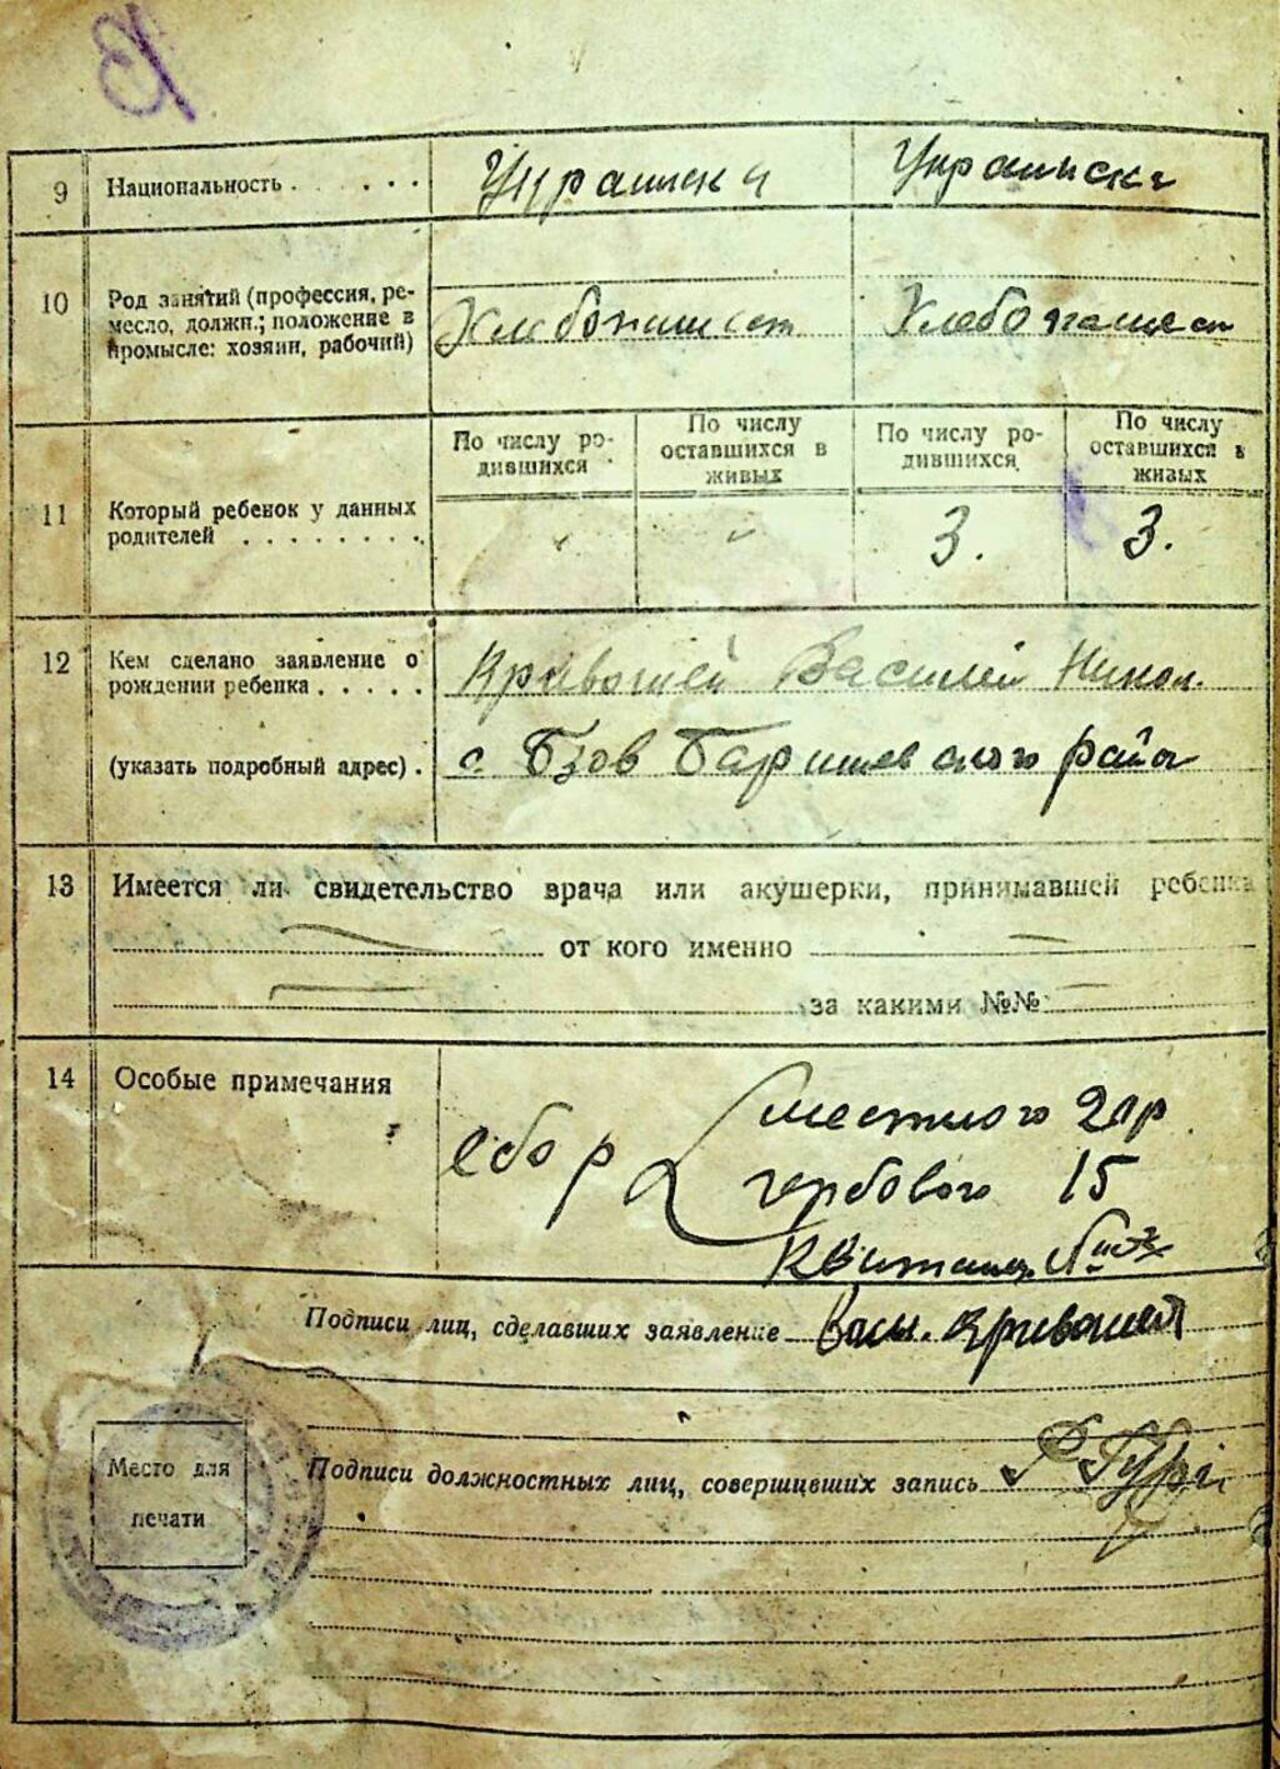 9 Национальность . . . . . Украинск Украинск
10 Род занятий (профессия, ре-
месло, должн.; положение в
промысле: хозяин, рабочий)
Хлебопашест Хлебопашест
По числу ро-
дившихся
По числу
оставшихся в
живых
По числу ро-
дившихся
По числу
оставшихся в
живых
11 Который ребенок у данных
родителей . . . . . . . .
" " 3. 3.
12 Кем сделано заявление о
рождении ребенка . . . . .
Кривошей Василий Никол.
(указать подробный адрес) . с. Бзов Баришевского райо
13 Имеется ли свидетельство врача или акушерки, принимавшей ребенка
от кого именно
за какими №№
14 Особые примечания
сбор местного 2 кр
гербового 15
Квитанц. №
Подписи лиц, сделавших заявление Васи. Кривошей
Подписи должностных лиц, совершивших запись
Место для
печати